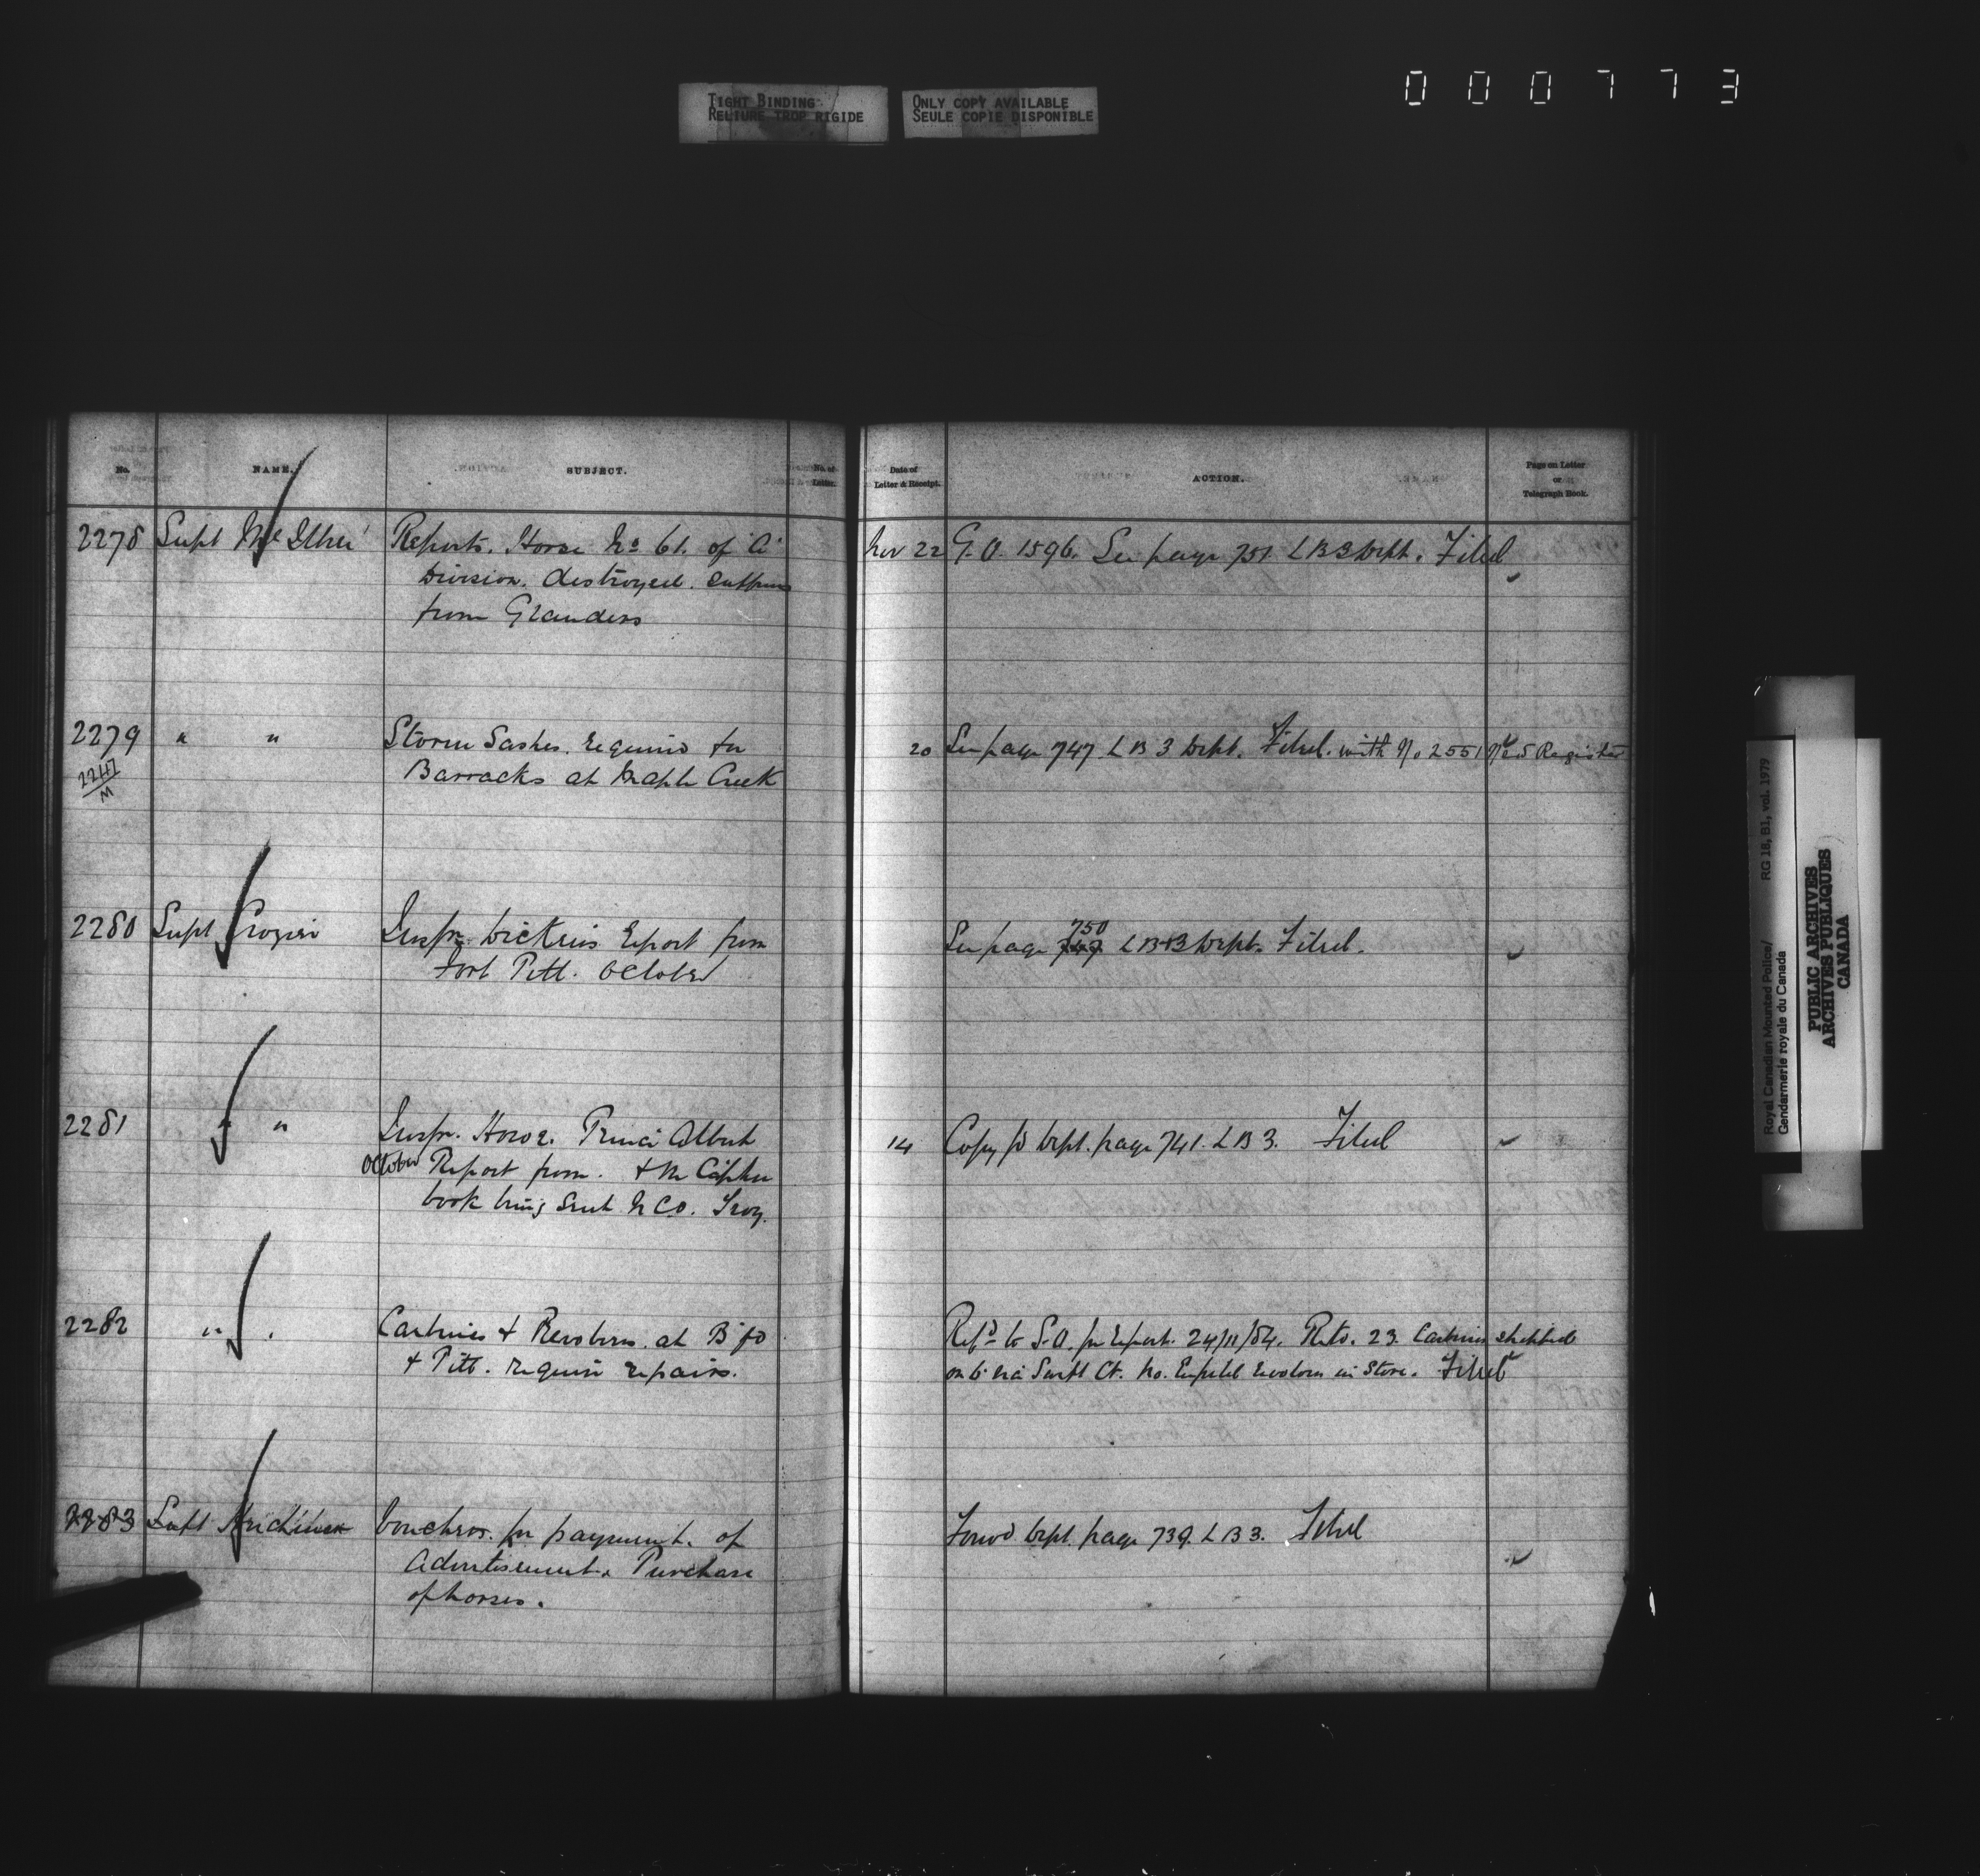 TIGHT BINDING
RELIURE TROP RIGIDE
ONLY COPY AVAILABLE
SEULE COPIE DISPONIBLE
000773
No.
NAME.
SUBJECT.
No. of
Letter.
Date of
Letter & Receipt.
ACTION.
Page on Letter
or
Telegraph Book.
2278 Supt Reports. Horse No 61. of "A" Nov 22 G.O. 1596. See page 751 L B 3 Dept. Filed
Division. destroyed.
from Glanders
2279 " " Storm Sashes. required for 20 See page 747 L B 3 Dept. Filed. with No 2551 No 5 Register
2247
M
Barracks at Maple Creek
2280 Supt Crozier Inspr. Dickens report from See page 747 750 L B 3 Dept. Filed.
Fort Pitt. October
2281 " " Inspr. Howe. Prince Albert 14 Copy to Dept. page 741. L B 3. Filed
October Report from. & re Cipher
book being sent N CO. Troy.
2282 " " Carbines & Revolvers. at B'fd Refd to S.O. for report. 24/11/84. 23 Carbines shipped
& Pitt. require repairs. on 6 via Swift Ct. No. Enfield revolvers in Store. Filed
2283 Supt Herchmer Vouchers. for payment. of Forwd Dept. page 739. L B 3. Filed
Advertisement. Purchase
of horses.
Royal Canadian Mounted Police/
Gendarmerie royale du Canada
RG 18, B1, vol. 1979
PUBLIC ARCHIVES
ARCHIVES PUBLIQUES
CANADA